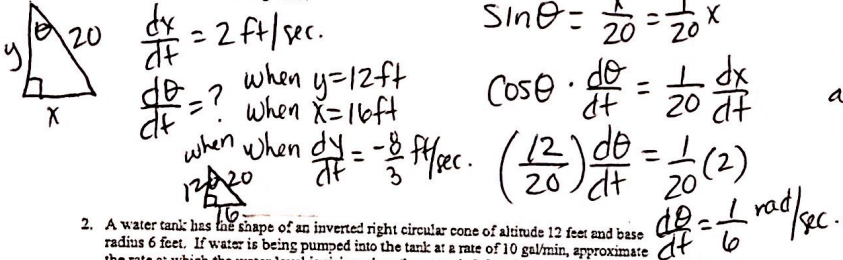 θ 20 y x
dx/dt = 2 ft/sec.
dθ/dt = ? when y=12ft
when x=16ft
when when dy/dt = -8/3 ft/sec.
12 θ 20
16
sinθ = x/20 = 1/20 x
cosθ · dθ/dt = 1/20 dx/dt
a
(12/20) dθ/dt = 1/20 (2)
dθ/dt = 1/6 rad/sec.
2. A water tank has the shape of an inverted right circular cone of altitude 12 feet and base
radius 6 feet. If water is being pumped into the tank at a rate of 10 gal/min, approximate